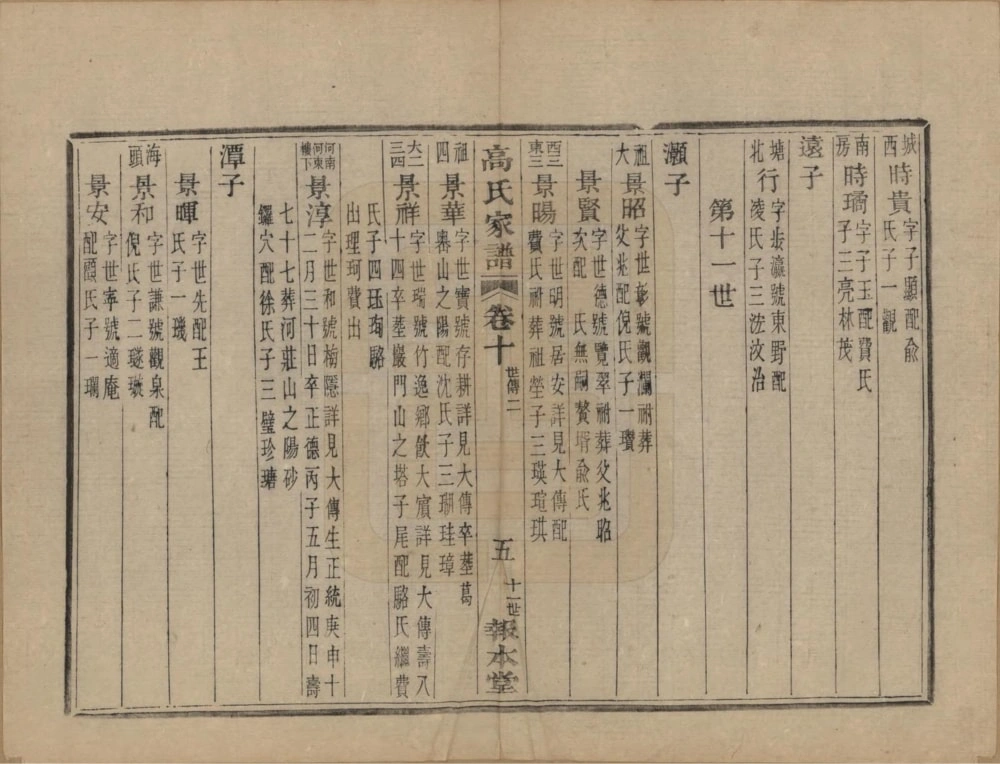 城西
時貴
字子顯配俞
氏子一觀
南房
時璚
字子玉配費氏
子三亮林茂
遠子
塘北
行
字 瀛號東野配
凌氏子三 汶治
第十一世
灝子
祖大
景昭
字世彰號觀瀾祔葬
父兆配倪氏子一瓚
景賢
字世德號覽翠祔葬父兆昭
次配 氏無嗣贅壻俞氏
西三
東三
景暘
字世明號居安詳見大傳配
費氏祔葬祖塋子三瑛瑄琪
高氏家譜
卷十
世傳二
五
十一世
報本堂
祖四
景華
字世寶號存耕詳見大傳卒葬葛
山之陽配沈氏子三瑚珪璋
大二
三四
景祥
字世瑞號竹逸鄉飲大賓詳見大傳壽八
十四卒葬巖門山之塔子尾配駱氏繼費
氏子四珏珣駱
出理珂費出
河南
河東
樓下
景淳
字世和號梅隱詳見大傳生正統庚申十
二月三十日卒正德丙子五月初四日壽
七十七葬河莊山之陽砂
鑼穴配徐氏子三璧珍瑭
潭子
景暉
字世先配王
氏子一璣
海頭
景和
字世謙號觀泉配
倪氏子二璲璥
景安
字世寧號適庵
配顧氏子一瓓